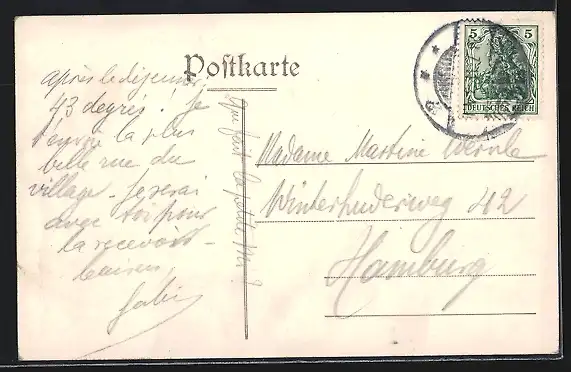 Postkarte
5 5
DEUTSCHES REICH
après le déjeuner
43 degrés! Je
t'envoie la plus
belle rue du
village. Je serai
avec toi pour
la recevoir -
baisers
Gabi
que fait la petite
Madame Martine
Winterhuderweg 42
Hamburg